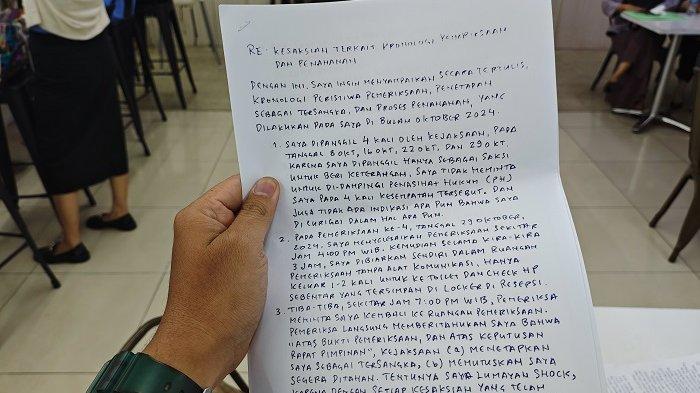 RE: KESAKSIAN TERKAIT KRONOLOGI PEMERIKSAAN
DAN PENAHANAN
DENGAN INI, SAYA INGIN MENYAMPAIKAN SECARA TERTULIS,
KRONOLOGI PERISTIWA PEMERIKSAAN, PENETAPAN
SEBAGAI TERSANGKA, DAN PROSES PENAHANAN, YANG
DILAKUKAN PADA SAYA DI BULAN OKTOBER 2024.
1. SAYA DIPANGGIL 4 KALI OLEH KEJAKSAAN, PADA
TANGGAL 8 OKT, 16 OKT, 22 OKT, DAN 29 OKT.
KARENA SAYA DIPANGGIL HANYA SEBAGAI SAKSI
UNTUK BERI KETERANGAN, SAYA TIDAK MEMINTA
UNTUK DI-DAMPINGI PENASIHAT HUKUM (PH)
SAYA PADA 4 KALI KESEMPATAN TERSEBUT. DAN
JUGA TIDAK ADA INDIKASI APA PUN BAHWA SAYA
DI CURIGAI DALAM HAL APA PUN.
2. PADA PEMERIKSAAN KE-4, TANGGAL 29 OKTOBER,
2024, SAYA MENYELESAIKAN PEMERIKSAAN SEKITAR
JAM 4:00 PM WIB. KEMUDIAN SELAMA KIRA-KIRA
3 JAM, SAYA DIBIARKAN SENDIRI DALAM RUANGAN
PEMERIKSAAN TANPA ALAT KOMUNIKASI, HANYA
KELUAR 1-2 KALI UNTUK KE TOILET DAN CHECK HP
SEBENTAR YANG TERSIMPAN DI LOCKER DI RESEPSI.
3. TIBA-TIBA, SEKITAR JAM 7:00 PM WIB, PEMERIKSA
MEMINTA SAYA KEMBALI KE RUANGAN PEMERIKSAAN.
PEMERIKSA LANGSUNG MEMBERITAHUKAN SAYA BAHWA
"ATAS BUKTI PEMERIKSAAN, DAN ATAS KEPUTUSAN
RAPAT PIMPINAN", KEJAKSAAN (a) MENETAPKAN
SAYA SEBAGAI TERSANGKA, (b) MEMUTUSKAN SAYA
SEGERA DITAHAN. TENTUNYA SAYA LUMAYAN SHOCK,
KARENA DENGAN SETIAP KESAKSIAN YANG TELAH